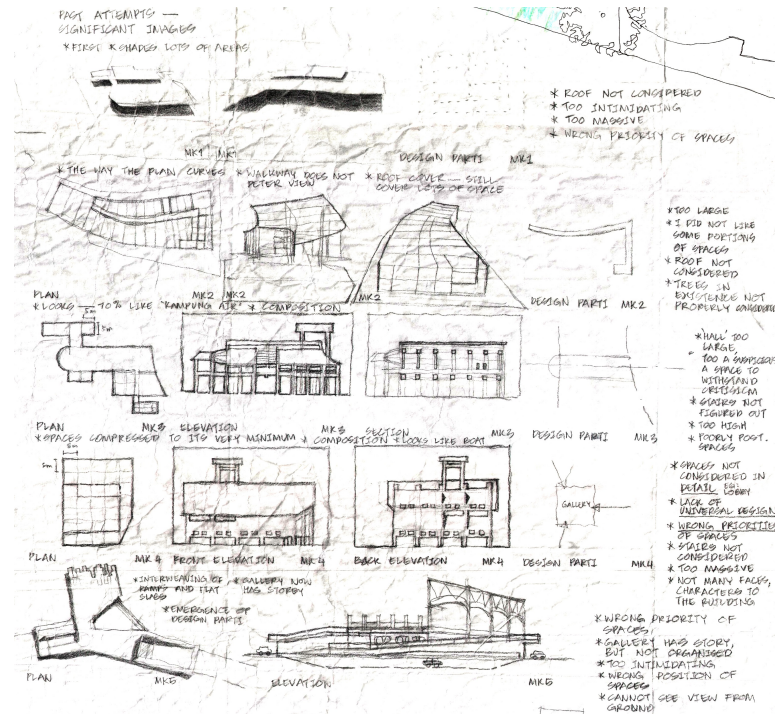 PAST ATTEMPTS —
SIGNIFICANT IMAGES
* FIRST * SHADES LOTS OF AREAS
* ROOF NOT CONSIDERED
* TOO INTIMIDATING
* TOO MASSIVE
* WRONG PRIORITY OF SPACES
MK1 MK1 DESIGN PARTI MK1
* THE WAY THE PLAN CURVES * WALKWAY DOES NOT DETER VIEW * ROOF COVER — STILL COVER LOTS OF SPACE
* TOO LARGE
* I DID NOT LIKE
SOME PORTIONS
OF SPACES
* ROOF NOT
CONSIDERED
* TREES IN
EXISTENCE NOT
PROPERLY CONSIDERED
PLAN MK2 MK2 MK2 DESIGN PARTI MK2
* LOOKS 70% LIKE "KAMPUNG AIR" * COMPOSITION
5m
5m
* 'HALL' TOO
LARGE,
TOO A SUSPICIOUS
A SPACE TO
WITHSTAND
CRITISICM
* STAIRS NOT
FIGURED OUT
* TOO HIGH
* POORLY POST.
SPACES
PLAN MK3 ELEVATION MK3 SECTION MK3 DESIGN PARTI MK3
* SPACES COMPRESSED TO ITS VERY MINIMUM * COMPOSITION * LOOKS LIKE BOAT
5m
5m
GALLERY
* SPACES NOT
CONSIDERED IN
DETAIL EG: LOBBY
* LACK OF
UNIVERSAL DESIGN
* WRONG PRIORITIES
OF SPACES
* STAIRS NOT
CONSIDERED
* TOO MASSIVE
* NOT MANY FACES,
CHARACTERS TO
THE BUILDING
PLAN MK4 FRONT ELEVATION MK4 BACK ELEVATION MK4 DESIGN PARTI MK4
* INTERWEAVING OF
RAMPS AND FLAT
SLABS
* GALLERY NOW
HAS STOREY
* EMERGENCE OF
DESIGN PARTI
* WRONG PRIORITY OF
SPACES
* GALLERY HAS STORY,
BUT NOT ORGANISED
* TOO INTIMIDATING
* WRONG POSITION OF
SPACES
* CANNOT SEE VIEW FROM
GROUND
PLAN MK5 ELEVATION MK5